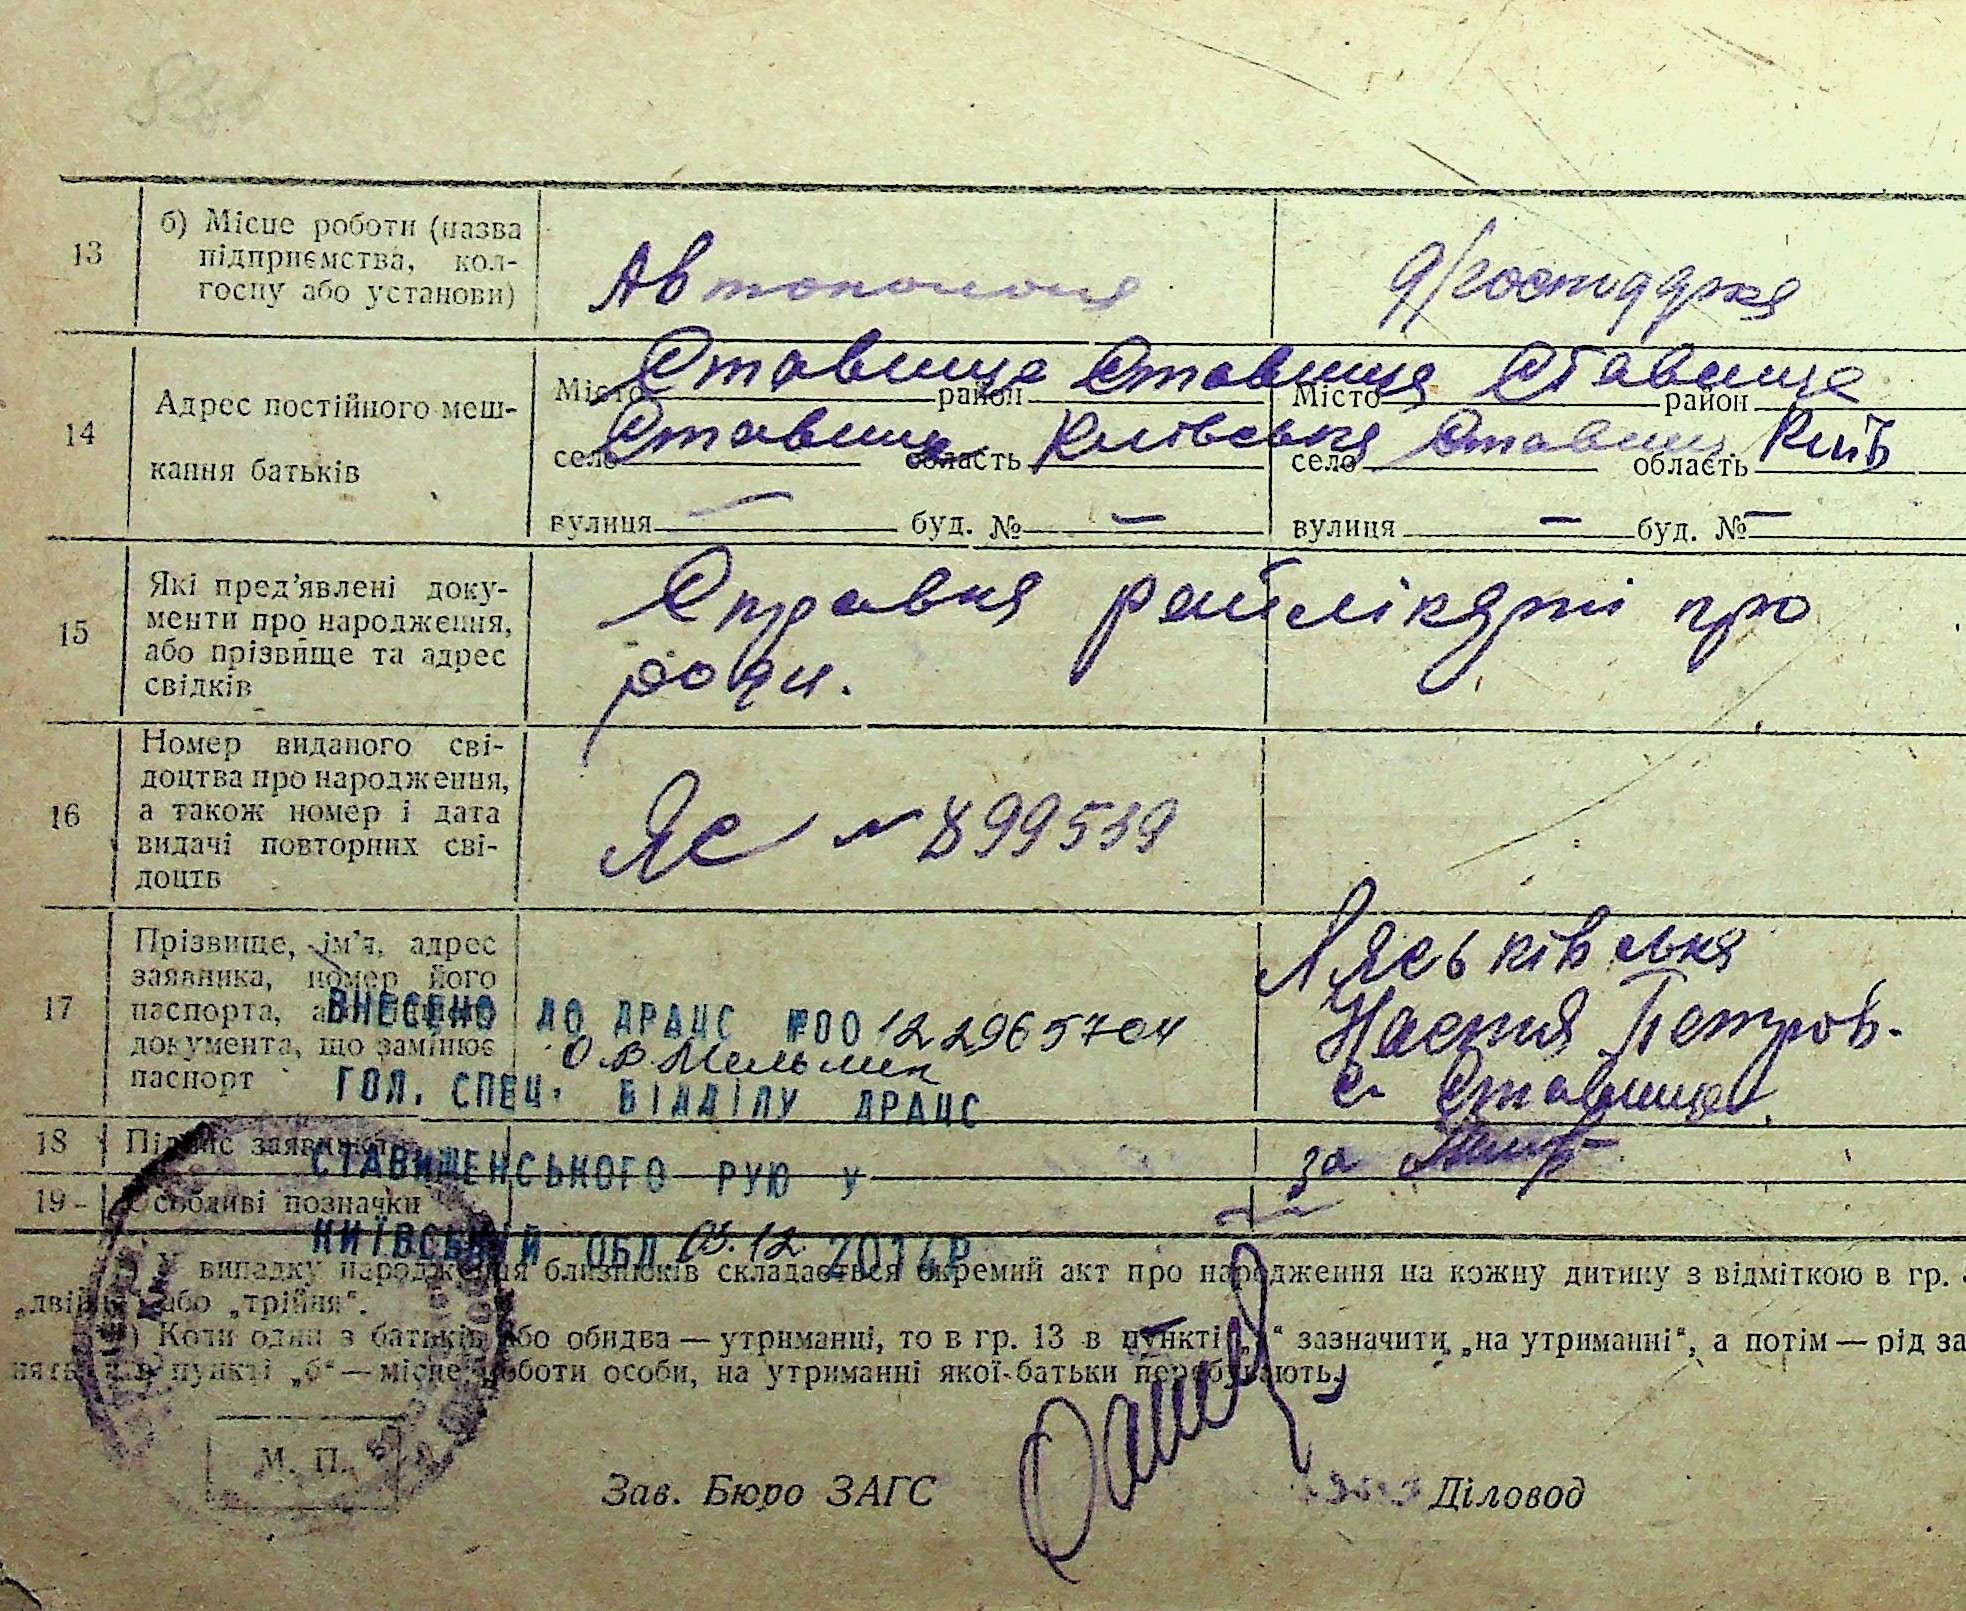 13
б) Місце роботи (назва
підприємства, кол-
госпу або установи)
Автоколона
д/господарка
14
Адрес постійного меш-
кання батьків
Місто Ставище район Ставище Місто Ставище район
село Ставище область Київська село Ставищ область Київ
вулиця — буд. № — вулиця — буд. № —
15
Які пред’явлені доку-
менти про народження,
або прізвище та адрес
свідків
Справка райлікарні про
роди.
16
Номер виданого сві-
доцтва про народження,
а також номер і дата
видачі повторних сві-
доцтв
ЯС № 899539
17
Прізвище, ім’я, адрес
заявника, номер його
паспорта, або
документа, що замінює
паспорт
Ляськівська
Настя Петров.
с. Ставище
ВНЕСЕНО ДО ДРАЦС №00 122965704
О.В. Мельник
ГОЛ. СПЕЦ. ВІДДІЛУ ДРАЦС
18 Підпис заявника за
СТАВИЩЕНСЬКОГО РУЮ У
19 - Особливі позначки
КИЇВСЬКІЙ ОБЛ 03.12. 2014Р
У випадку народження близнюків складається окремий акт про народження на кожну дитину з відміткою в гр.
„двійня“ або „трійня“.
) Коли один з батьків або обидва — утриманці, то в гр. 13 в пункті „а“ зазначити „на утриманні“, а потім — рід за
няття, а в пункті „б“ — місце роботи особи, на утриманні якої батьки перебувають.
М. П.
Зав. Бюро ЗАГС Діловод